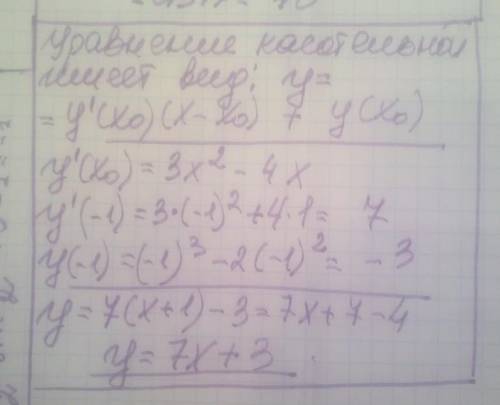 Уравнение касательной
имеет вид: y=
= y'(x₀)(x-x₀) + y(x₀)
y'(x₀) = 3x² - 4x
y'(-1) = 3·(-1)² + 4·1 = 7
y(-1) = (-1)³ - 2(-1)² = -3
y = 7(x+1) - 3 = 7x + 7 - 4
y = 7x + 3